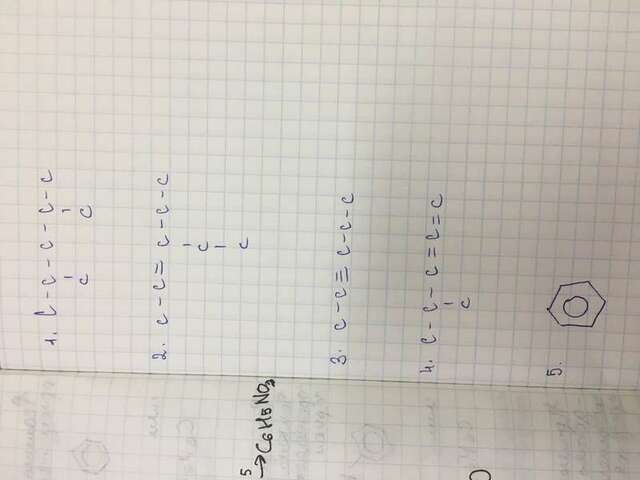 1. C - C - C - C - C
C C
2. C - C = C - C - C
C
C
5
→ C6H5NO2
3. C - C ≡ C - C - C
4. C - C - C = C = C
C
5.